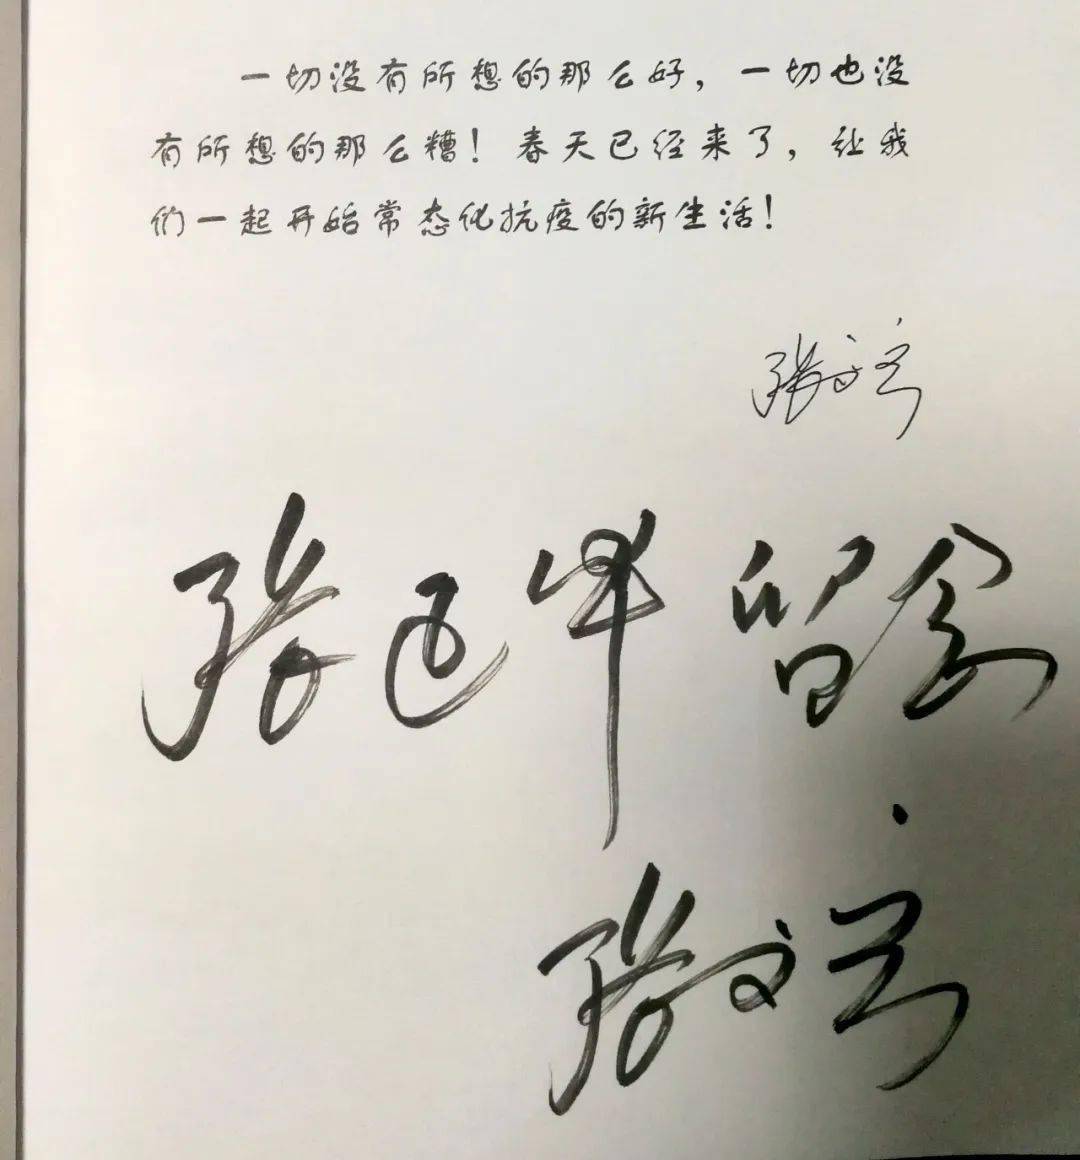 一切没有所想的那么好，一切也没
有所想的那么糟！春天已经来了，让我
们一起开始常态化抗疫的新生活！
张文宏
张 留念
张文宏